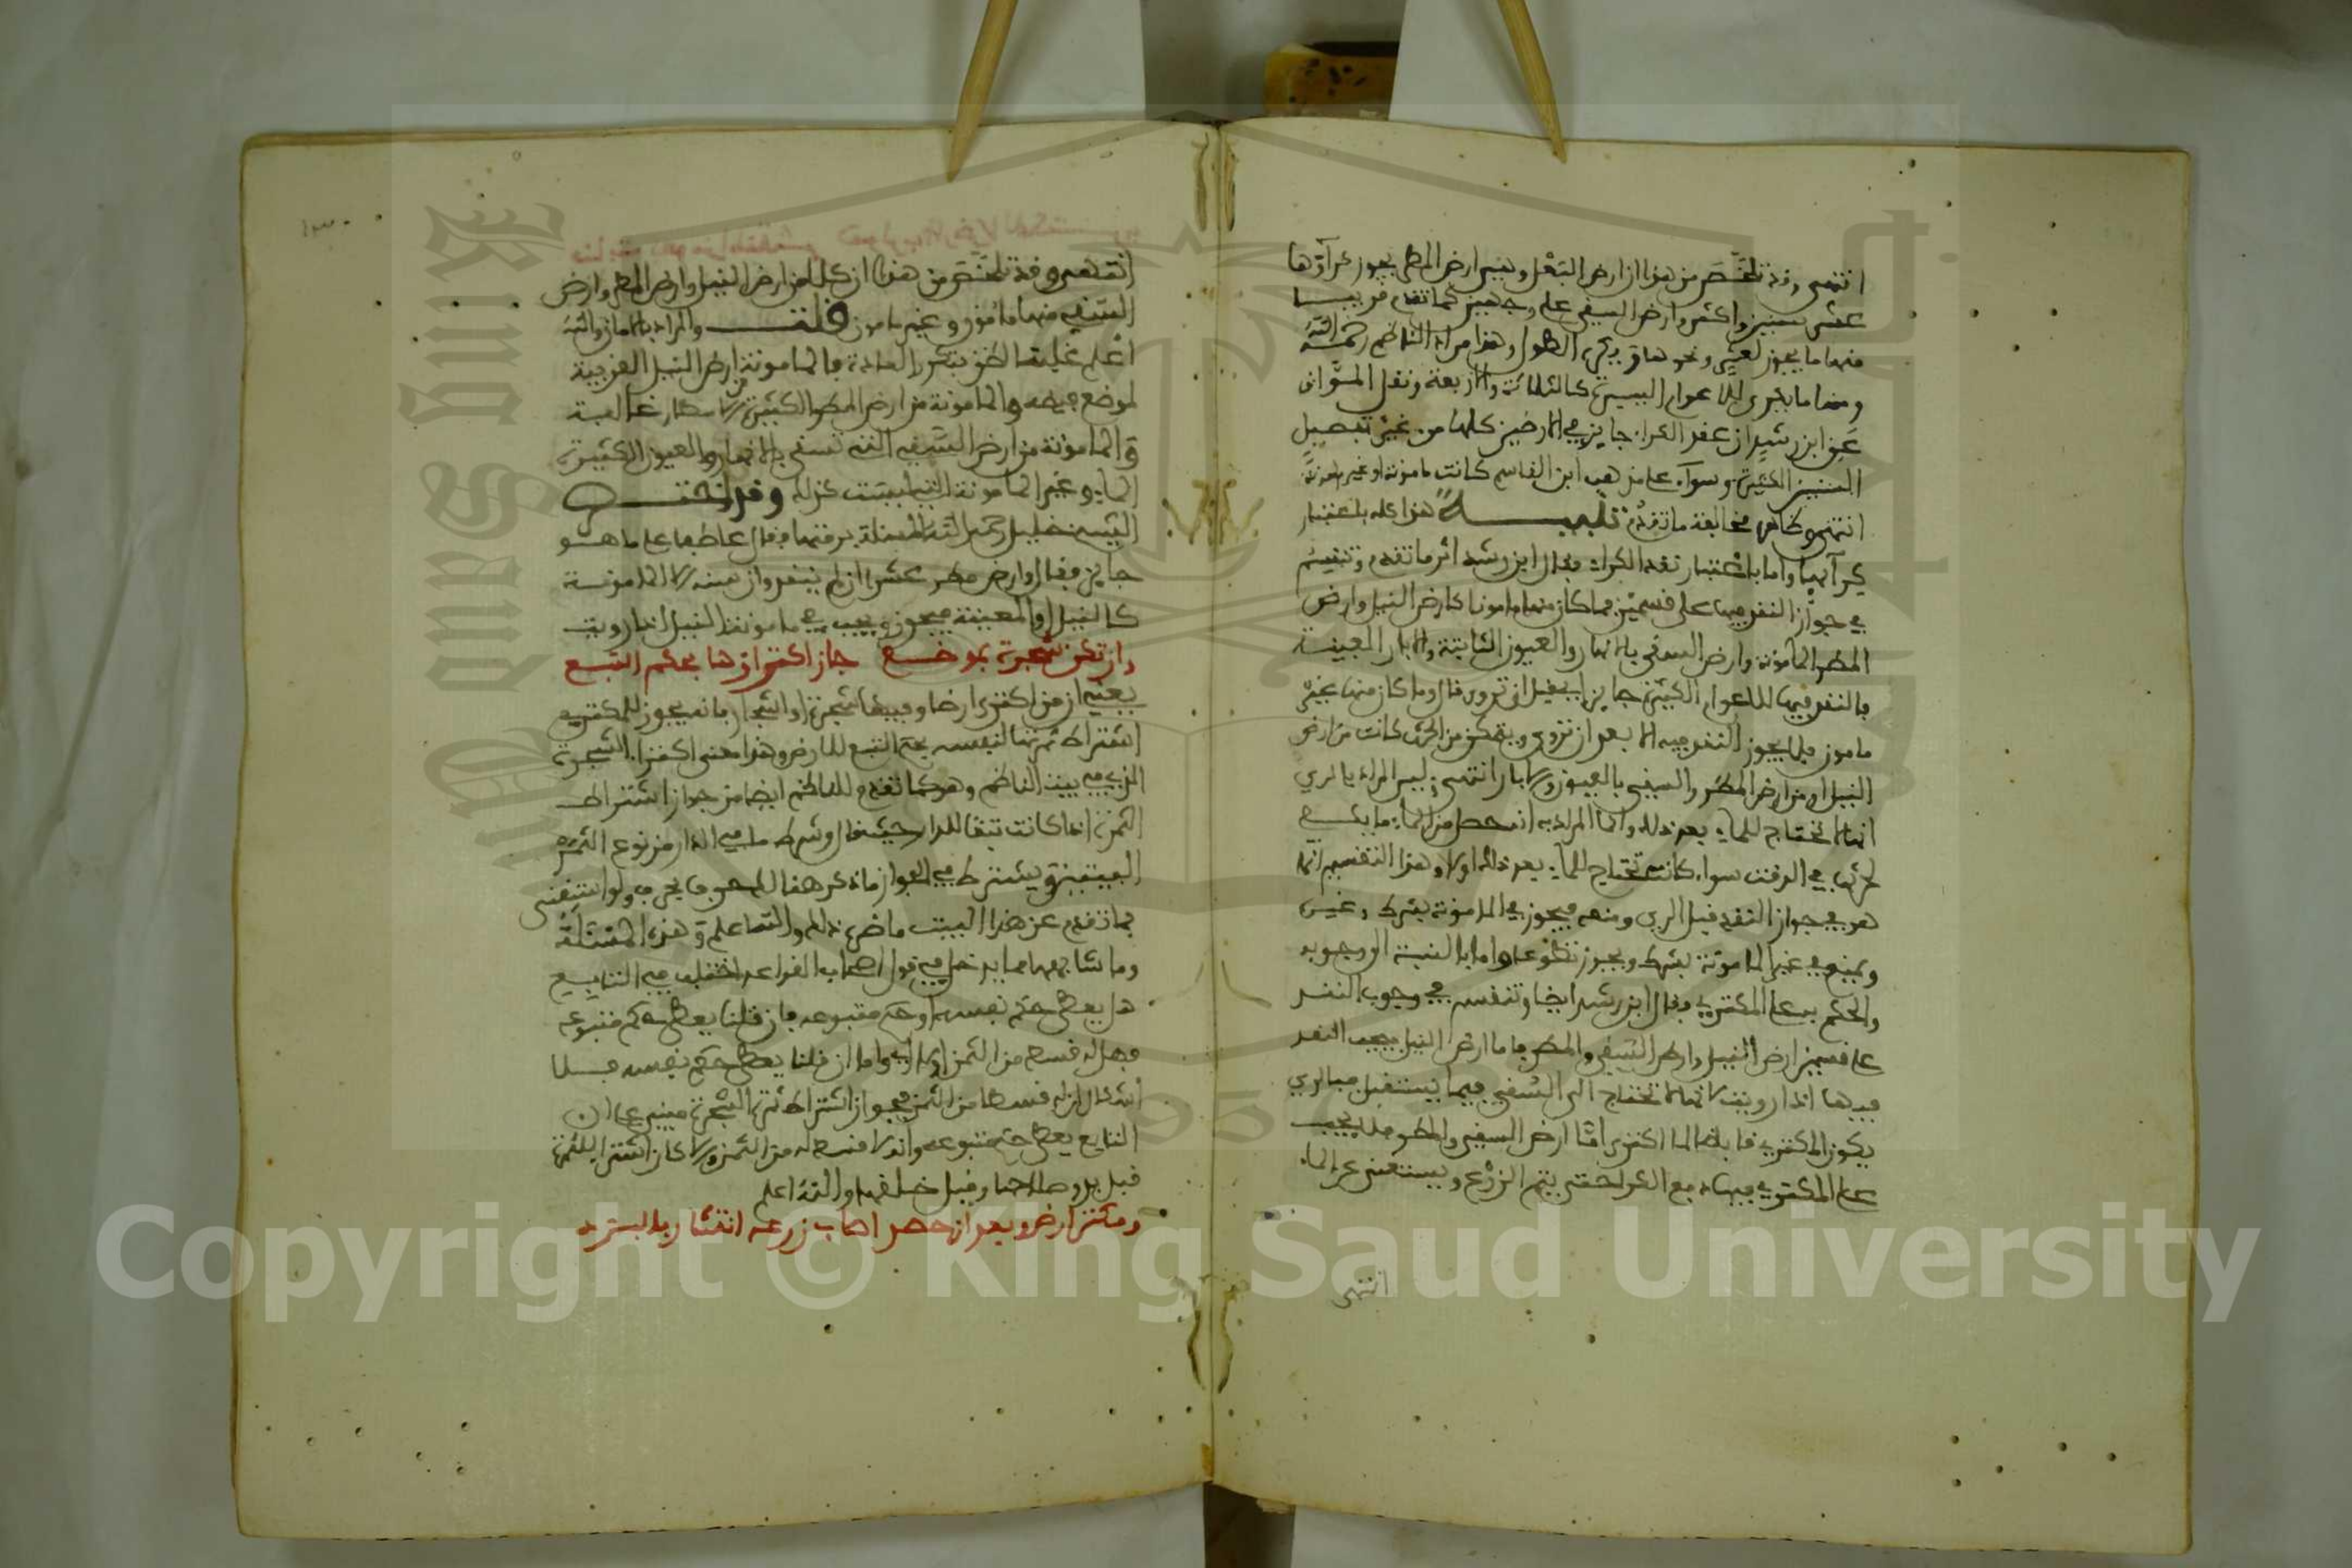 انتهى وقد تلخص من هذا ان ارض البعل وهي ارض المطر يجوز كراؤها
عشر سنين واكثر وارض السقي على وجهين كما تقدم قريبا
منها ما يجوز لعشر ونحوها في الطول وهذا مراد الناظم رحمه الله
ومنها ما يكرى للاعوام اليسيرة كالثلاثة والاربعة ونقل المواق
عن ابن رشد ان عقد الكراء جايز في الارضين كلها من غير تفصيل
السنين الكثيرة وسواء على مذهب ابن القاسم كانت مامونة او غير مامونة
انتهى وظاهره مخالفة ما تقدم تنبيه هذا كله باعتبار
كرآئها واما باعتبار نقد الكراء فقال ابن رشد اثر ما تقدم وتنقسم
في جواز النقد فيها على قسمين فما كان منها مامونا كارض النيل وارض
المطر المامونة وارض السقي بالانهار والعيون الثابتة والابار المعينة
فالنقد فيها للاعوام الكثيرة جايز قبل ان تروى قال وما كان منها غير
مامون فلا يجوز النقد فيه الا بعد ان تروى ويتمكن من الحرث كانت من ارض
النيل او من ارض المطر والسقي بالعيون والابار انتهى ليس المراد بالري
انها لا تحتاج للماء بعد ذلك وانما المراد به ان يحصل من الماء ما يكفي
لحرثها في الوقت سواء كانت تحتاج للماء بعد ذلك اولا وهذا التقسيم انما
هو في جواز النقد قبل الري ومنعه فيجوز في المامونة بشرط وغيره
ويمنع في غير المامونة بشرط ويجوز تطوعا واما بالنسبة الى وجوبه
والحكم به على المكتري فقال ابن رشد ايضا وتنقسم في وجوب النقد
على قسمين ارض النيل وارض السقي والمطر فاما ارض النيل فيجب النقد
فيها اذا رويت لانها لا تحتاج الى السقي فيما يستقبل فبالري
يكون المكتري قابضا لما اكترى اما ارض السقي والمطر فلا يجب
على المكتري فيها دفع الكراء حتى يتم الزرع ويستغنى عن الماء
انتهى
انتهى وقد تلخص من هذا ان كلا من ارض النيل وارض المطر وارض
السقي منها مامون وغير مامون قلت والمراد بالامان والله
اعلم غلبة الظن بتكرر العادة فالمامونة من ارض النيل القريبة
لموضع فيضه والمامونة من ارض المطر الكثيرة الامطار غالبة
والمامونة من ارض السقي التي تسقى بالانهار والعيون الكثيرة
الماء وغير المامونة التي ليست كذلك وقد اختصر
الشيخ خليل رحمه الله المسئلة برمتها فقال عاطفا على ما هو
جايز فقال وارض مطر عشرا ان لم ينقد وان سنة الا المامونة
كالنيل والمعينة فيجوز ويجب في مامونة النيل اذا رويت
وان تكن شجرة بموضع جاز اكتراؤها بحكم التبع
يعني ان من اكترى ارضا وفيها شجرة او اشجار فانه يجوز للمكتري
اشتراط ثمرتها لنفسه بحكم التبع للارض وهذا معنى اكتراء الشجرة
الذي في بيت الناظم وهو كما تقدم للناظم ايضا من جواز اشتراط
الثمرة اذا كانت تبعا للدار حيث قال وشرط ما في الدار من نوع الثمر
البيتين ويشترط في الجواز ما ذكر هنالك حرفا بحرف ولو استغنى
بما تقدم عن هذا البيت ما ضره ذلك والله اعلم وهذه المسئلة
وما شابهها مما يدخل في قول اصحاب القواعد اختلف في التابع
هل يعطى حكم نفسه او حكم متبوعه فان قلنا يعطى حكم متبوعه
فهل له قسط من الثمن ام لا واما ان قلنا يعطى حكم نفسه فلا
اشكال ان له قسطا من الثمن فجواز اشتراط ثمرة الشجرة مبني على ان
التابع يعطى حكم متبوعه وانه لا قسط له من الثمن والا كان اشتراء للثمرة
قبل بدو صلاحها وقبل خلقها والله اعلم
ومكتر ارضا وبعد ان حصد اصاب زرعه انتثار بالبرد